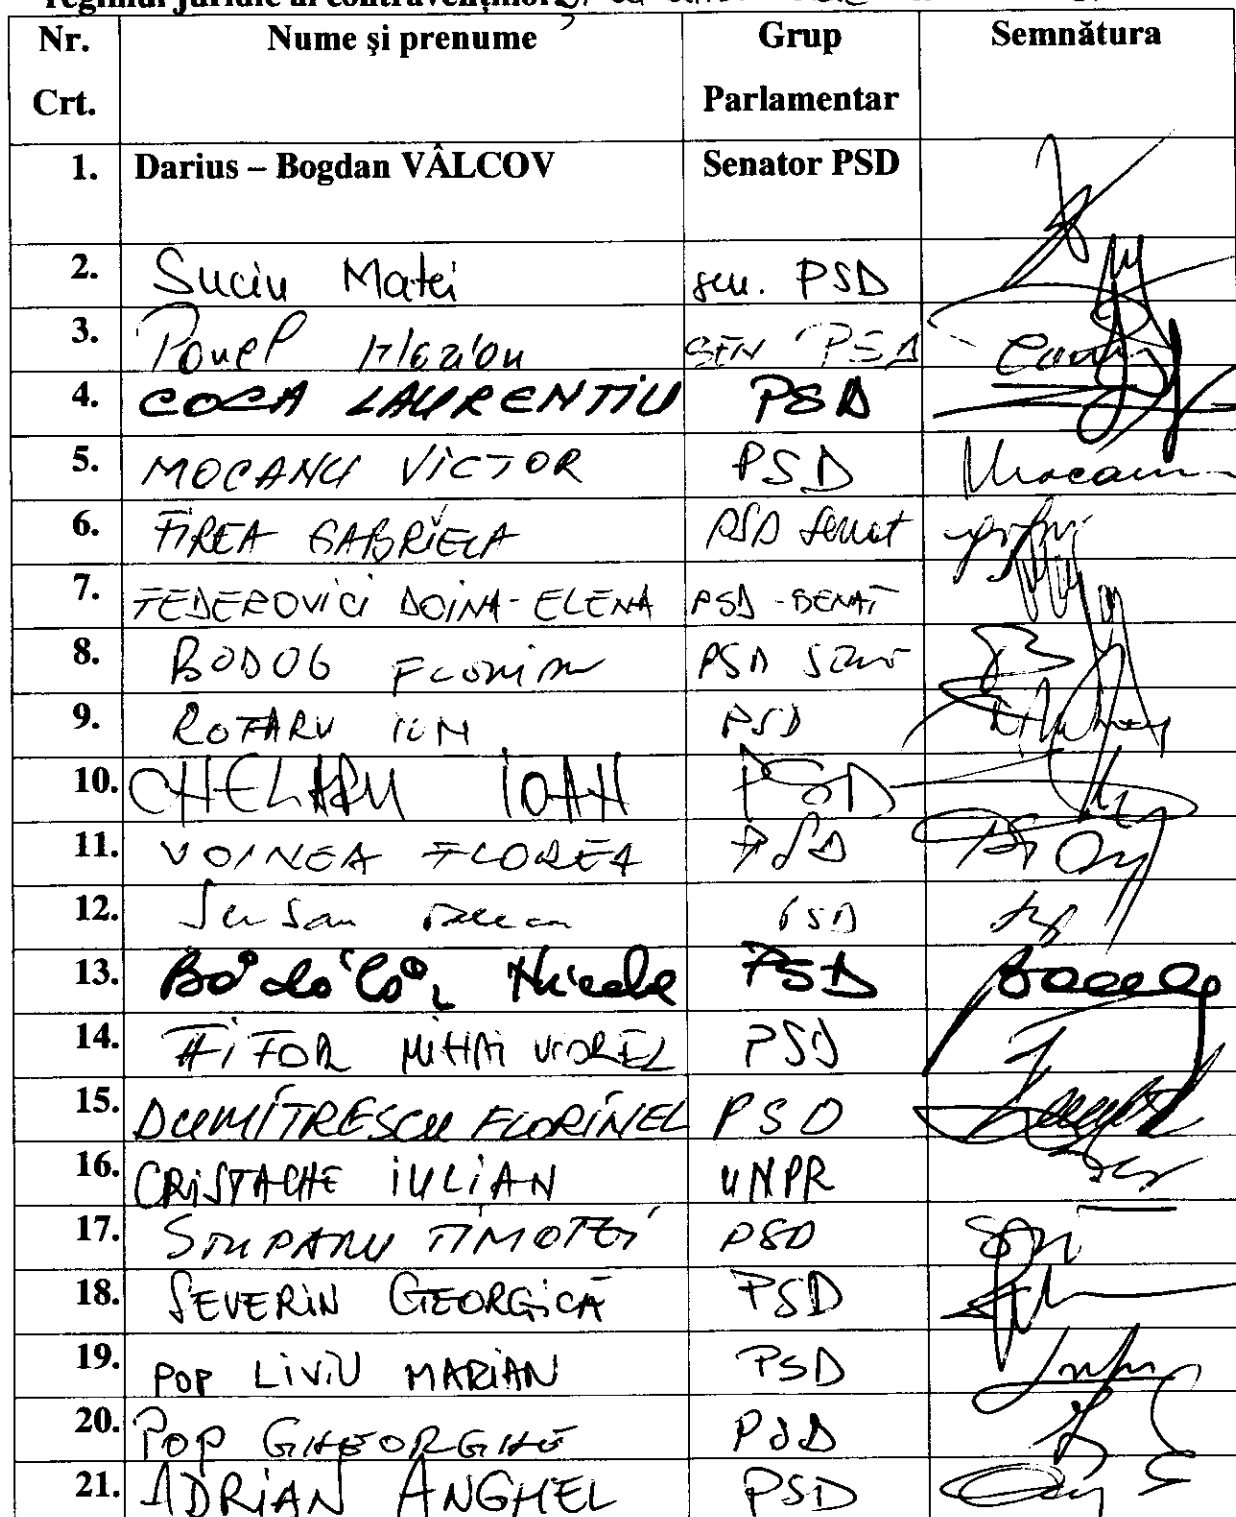 regimul juridic al contravențiilor
Nr. Crt. Nume și prenume Grup Parlamentar Semnătura
1. Darius – Bogdan VÂLCOV Senator PSD
2. Suciu Matei sen. PSD
3. SEN PSD
4. COCA LAURENTIU PSD
5. MOCANU VICTOR PSD Mocanu
6. FIREA GABRIELA PSD Senat
7. FEDEROVICI DOINA-ELENA PSD - SENAT
8. BODOG FLORIAN PSD
9. ROTARU ION PSD
10. CHELARU IOAN PSD
11. VOINEA FLOREA PSD
12. PSD
13. PSD
14. FIFOR MIHAI VIOREL PSD
15. DUMITRESCU FLORINEL PSD
16. CRISTACHE IULIAN UNPR
17. STUPARU TIMOTEI PSD
18. SEVERIN GEORGICĂ PSD
19. POP LIVIU MARIAN PSD
20. POP GHEORGHE PSD
21. ADRIAN ANGHEL PSD